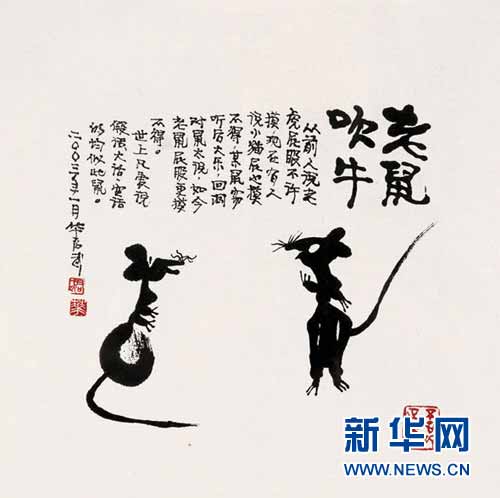 老鼠
吹牛
从前人说老
虎屁股不许
摸,现在有人
说小猫屁也摸
不得,某鼠
听后大乐,回洞
对鼠太说,如今
老鼠屁股更摸
不得。
世上凡爱说
假话大话、空话
的均似此鼠。
二〇〇三年一月 华君武
新华网
WWW.NEWS.CN